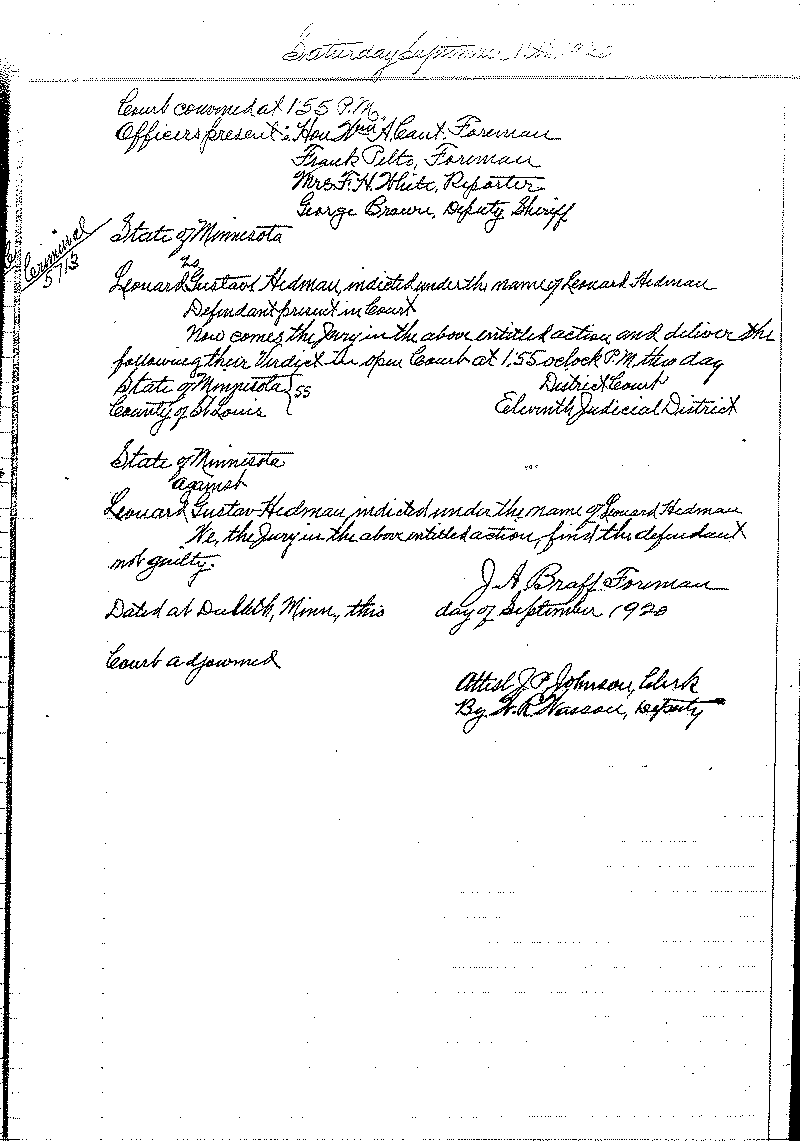 Saturday September 18th 1920
Court convened at 1:55 P.M.
Officers present: Hon Wm A Cant. Foreman
Frank Pelto, Foreman
Mrs F. H. White, Reporter
George Brown, Deputy Sheriff
Criminal
5713
State of Minnesota
vs
Leonard Gustave Hedman, indicted under the name of Leonard Hedman
Defendant present in Court
Now comes the Jury in the above entitled action and deliver the
following their Verdict in open Court at 1:55 oclock P.M. this day
State of Minnesota } SS District Court
County of St Louis Eleventh Judicial District
State of Minnesota
against
Leonard Gustav Hedman, indicted under the name of Leonard Hedman
We, the Jury in the above entitled action, find the defendant
not guilty.
J. A. Braff Foreman
Dated at Duluth, Minn, this day of September 1920
Court adjourned
Attest J. P. Johnson, Clerk
By W. R. Wasson, Deputy